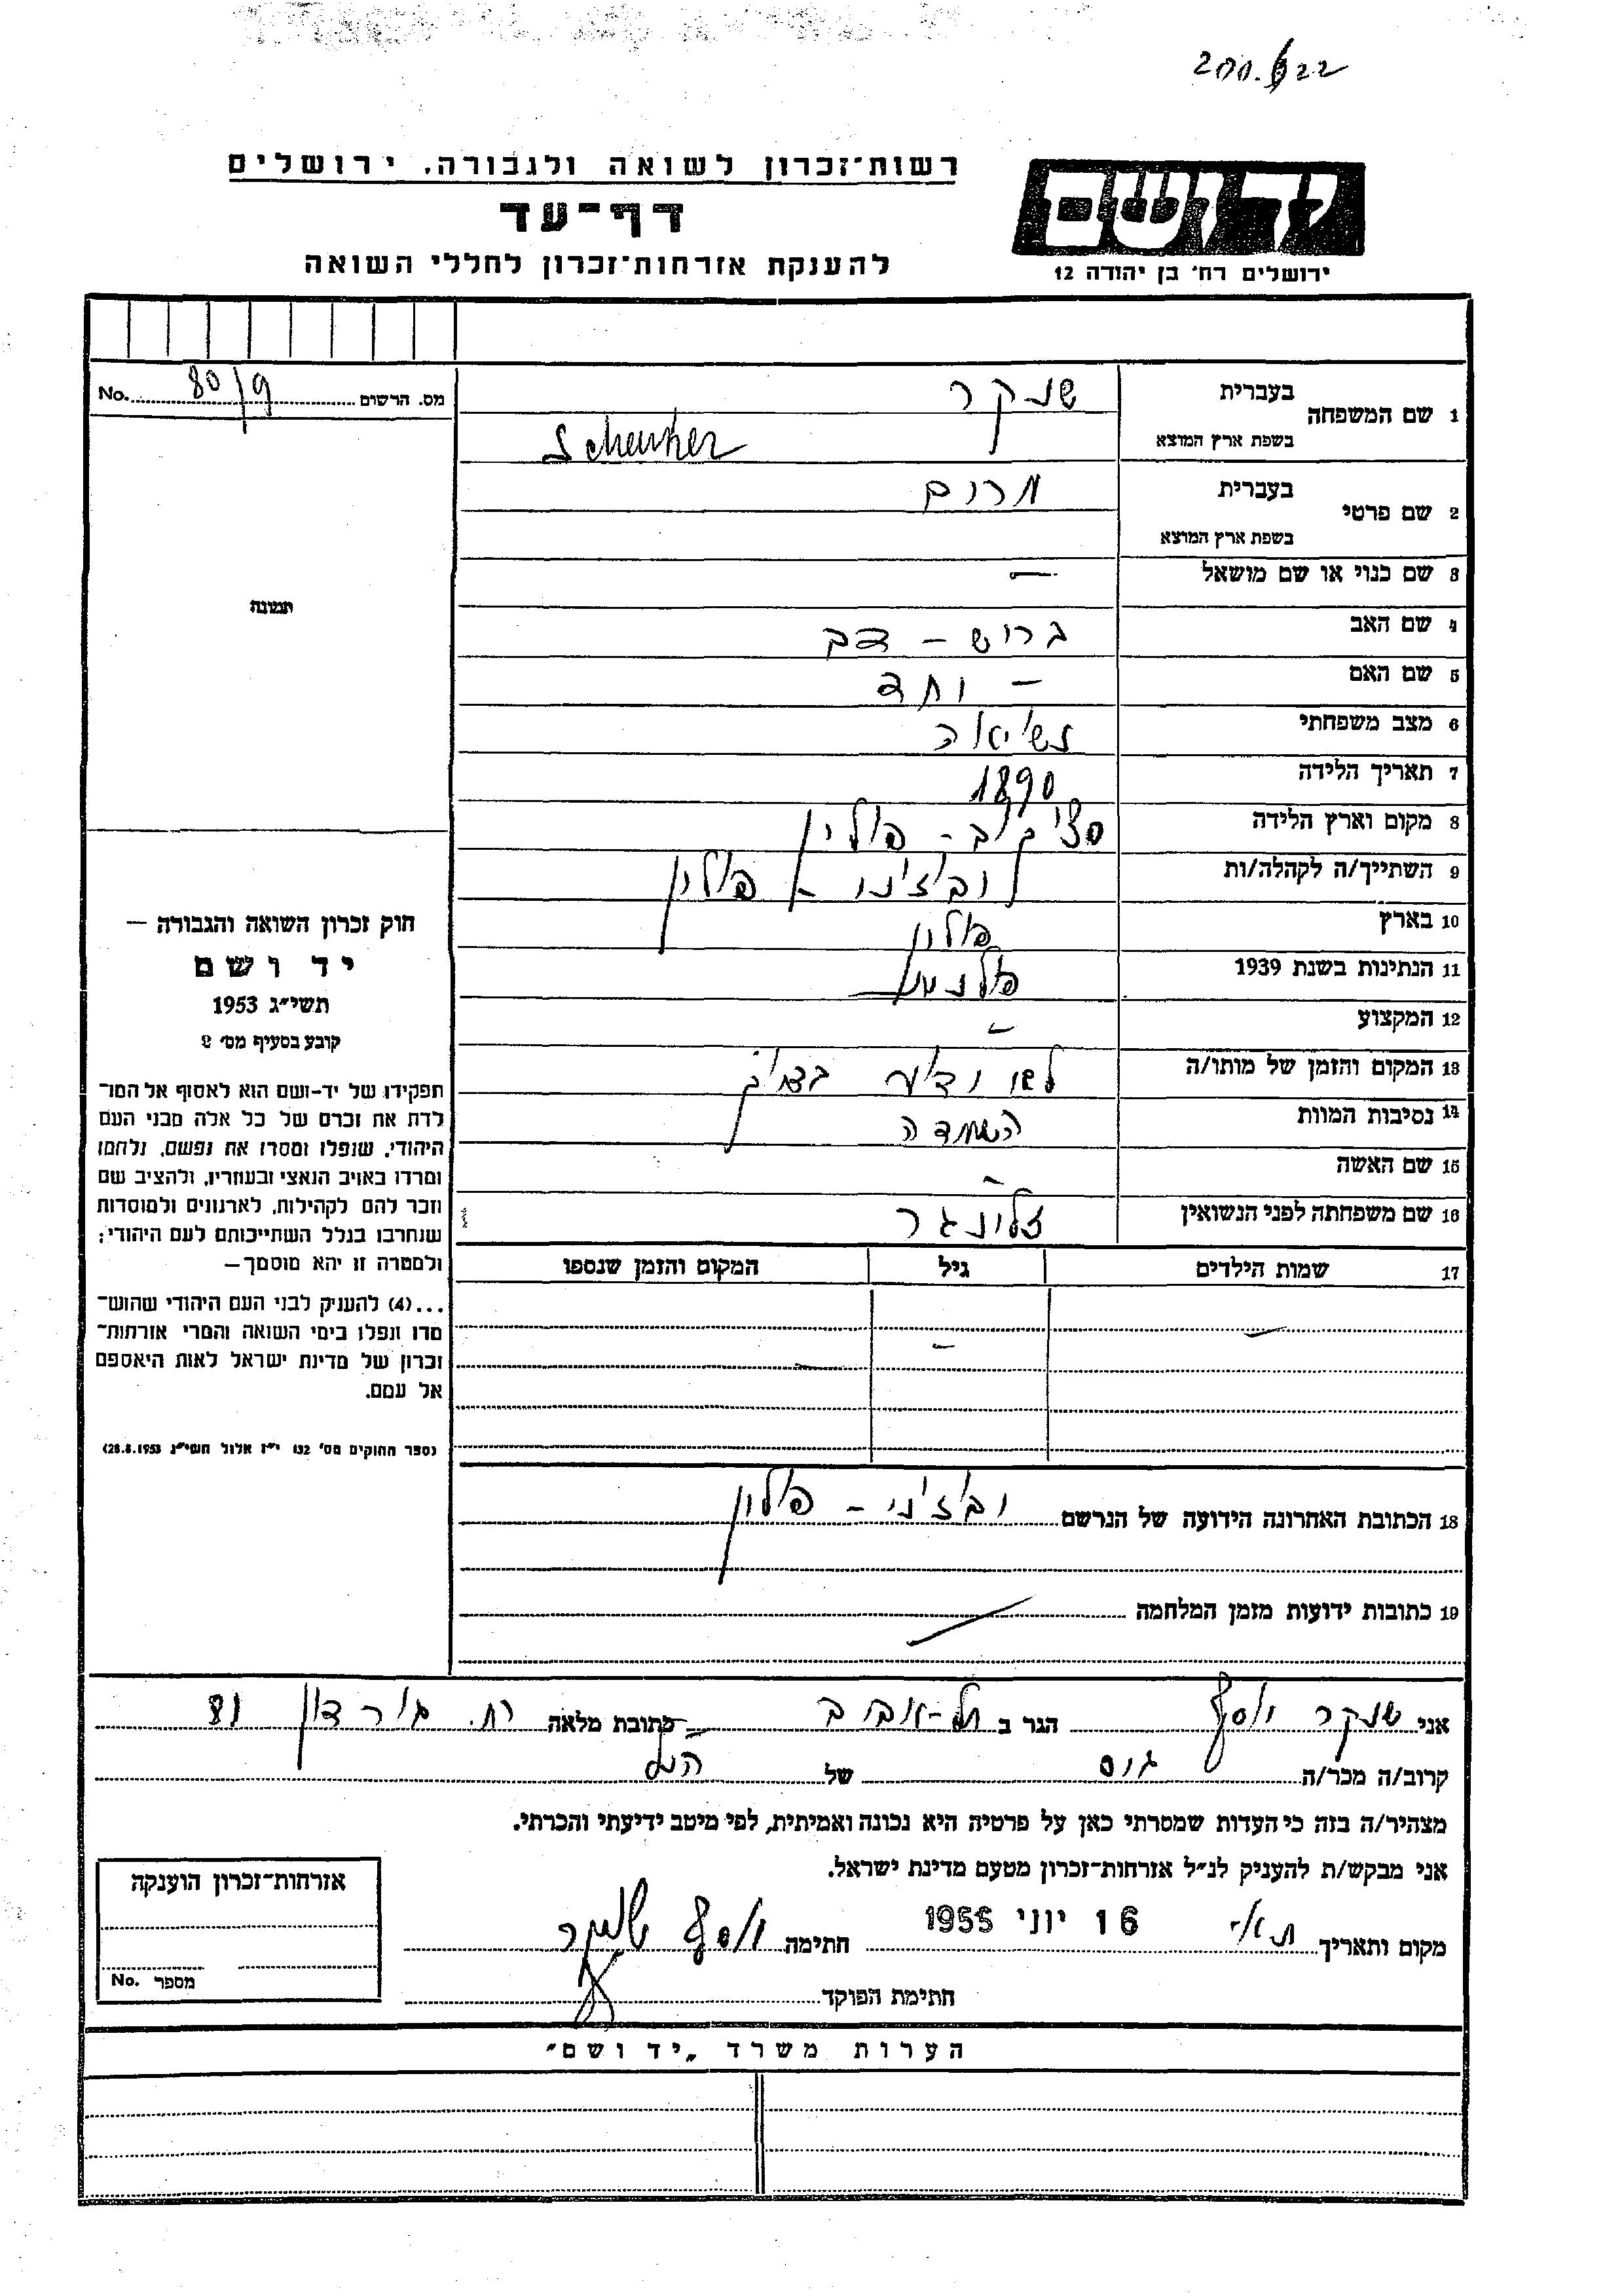 רשות־זכרון לשואה ולגבורה, ירושלים
ידושם
דף־עד
להענקת אזרחות־זכרון לחללי השואה
ירושלים רח׳ בן יהודה 12
מס. הרשום No. 80/9
1 שם המשפחה
בעברית שנקר
בשפת ארץ המוצא Schenker
2 שם פרטי
בעברית מרים
בשפת ארץ המוצא
3 שם כנוי או שם מושאל –
תמונה
4 שם האב ברוש – דב
5 שם האם –
6 מצב משפחתי נשיאה
7 תאריך הלידה 1890
8 מקום וארץ הלידה פולין
9 השתייך/ה לקהלה/ות פולין
10 בארץ פולין
11 הנתינות בשנת 1939 פולנית
12 המקצוע –
13 המקום והזמן של מותו/ה לא ידוע
14 נסיבות המוות השמדה
15 שם האשה –
16 שם משפחתה לפני הנשואין זלינגר
17 שמות הילדים גיל המקום והזמן שנספו
18 הכתובת האחרונה הידועה של הנרשם – פולין
19 כתובות ידועות מזמן המלחמה
חוק זכרון השואה והגבורה —
יד ושם
תשי״ג 1953
קובע בסעיף מס׳ 2
תפקידו של יד-ושם הוא לאסוף אל המו־
לדת את זכרם של כל אלה מבני העם
היהודי, שנפלו ומסרו את נפשם, נלחמו
ומרדו באויב הנאצי ובעוזריו, ולהציב שם
וזכר להם לקהילות, לארגונים ולמוסדות
שנחרבו בגלל השתייכותם לעם היהודי;
ולמטרה זו יהא מוסמך—
...(4) להעניק לבני העם היהודי שהוש־
מדו ונפלו בימי השואה והמרי אזרחות־
זכרון של מדינת ישראל לאות היאספם
אל עמם.
(ספר החוקים מס׳ 132 י״ז אלול תשי״ג 28.8.1953)
אני שנקר יוסף הגר ב תל-אביב כתובת מלאה רח. גורדון 81
קרוב/ה מכר/ה של הנ״ל
מצהיר/ה בזה כי העדות שמסרתי כאן על פרטיה היא נכונה ואמיתית, לפי מיטב ידיעתי והכרתי.
אני מבקש/ת להעניק לנ״ל אזרחות-זכרון מטעם מדינת ישראל.
מקום ותאריך ת״א 16 יוני 1955 חתימה יוסף שנקר
חתימת הפוקד
אזרחות-זכרון הוענקה
מספר No.
הערות משרד „יד ושם״